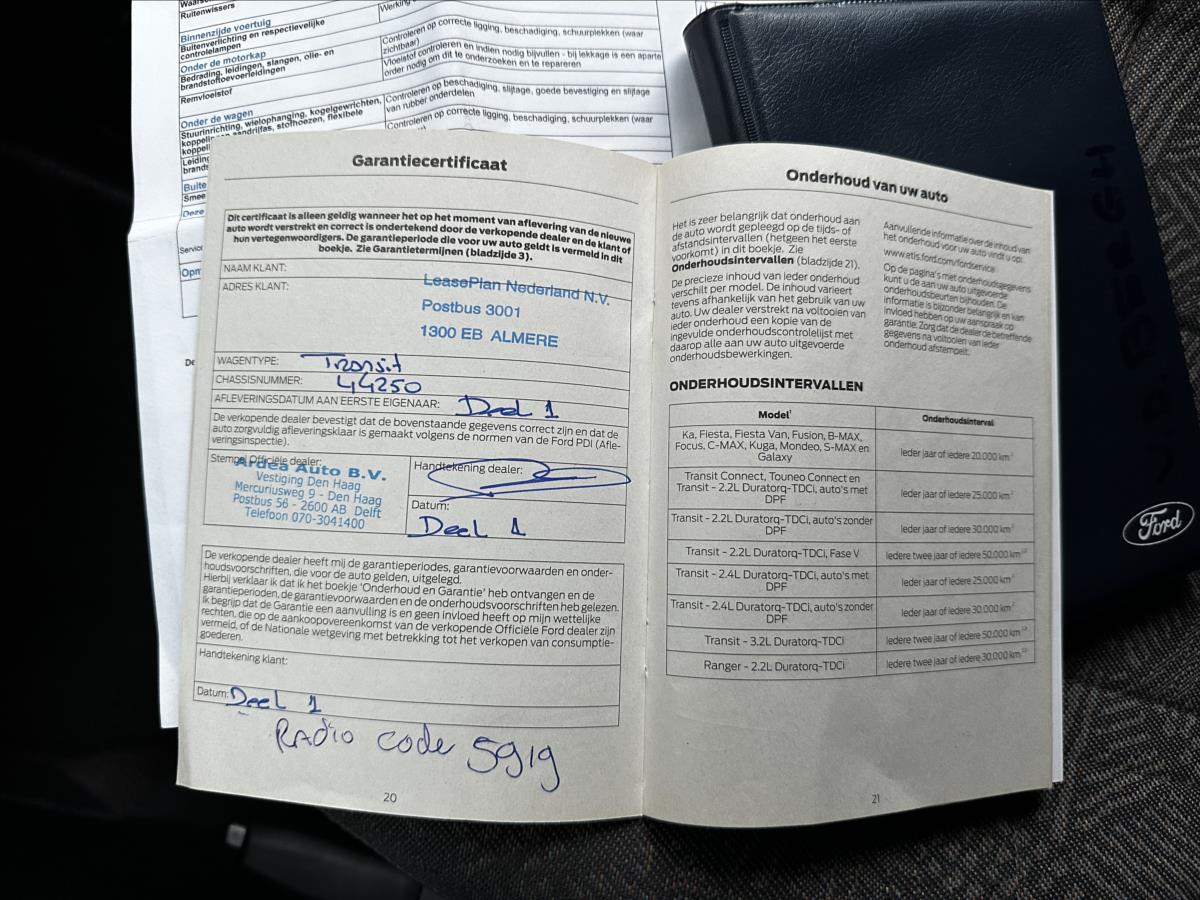 Ruitenwissers
Binnenzijde voertuig
Buitenverlichting en respectievelijke
controlelampen
Controleren op correcte ligging, beschadiging, schuurplekken (waar
zichtbaar)
Onder de motorkap
Bedrading, leidingen, slangen, olie- en
brandstoftoevoerleidingen
Vloeistof controleren en indien nodig bijvullen - bij lekkage is een aparte
order nodig om dit te onderzoeken en te repareren
Remvloeistof
Onder de wagen
Stuurinrichting, wielophanging, kogelgewrichten,
Controleren op beschadiging, slijtage, goede bevestiging en slijtage
van rubber onderdelen
Controleren op correcte ligging, beschadiging, schuurplekken (waar
Garantiecertificaat
Dit certificaat is alleen geldig wanneer het op het moment van aflevering van de nieuwe
auto wordt verstrekt en correct is ondertekend door de verkopende dealer en de klant of
hun vertegenwoordigers. De garantieperiode die voor uw auto geldt is vermeld in dit
boekje. Zie Garantietermijnen (bladzijde 3).
NAAM KLANT:
LeasePlan Nederland N.V.
ADRES KLANT:
Postbus 3001
1300 EB ALMERE
WAGENTYPE: Transit
CHASSISNUMMER: 44250
AFLEVERINGSDATUM AAN EERSTE EIGENAAR: Deel 1
De verkopende dealer bevestigt dat de bovenstaande gegevens correct zijn en dat de
auto zorgvuldig afleveringsklaar is gemaakt volgens de normen van de Ford PDI (Afle-
veringsinspectie).
Stempel Officiële dealer:
Ardea Auto B.V.
Vestiging Den Haag
Mercuriusweg 9 - Den Haag
Postbus 56 - 2600 AB Delft
Telefoon 070-3041400
Handtekening dealer:
Datum:
Deel 1
De verkopende dealer heeft mij de garantieperiodes, garantievoorwaarden en onder-
houdsvoorschriften, die voor de auto gelden, uitgelegd.
Hierbij verklaar ik dat ik het boekje 'Onderhoud en Garantie' heb ontvangen en de
garantieperioden, de garantievoorwaarden en de onderhoudsvoorschriften heb gelezen.
Ik begrijp dat de Garantie een aanvulling is en geen invloed heeft op mijn wettelijke
rechten, die op de aankoopovereenkomst van de verkopende Officiële Ford dealer zijn
vermeld, of de Nationale wetgeving met betrekking tot het verkopen van consumptie-
goederen.
Handtekening klant:
Datum: Deel 1
Radio code 5919
20
Onderhoud van uw auto
Het is zeer belangrijk dat onderhoud aan
de auto wordt gepleegd op de tijds- of
afstandsintervallen (hetgeen het eerste
voorkomt) in dit boekje. Zie
Onderhoudsintervallen (bladzijde 21).
De precieze inhoud van ieder onderhoud
verschilt per model. De inhoud varieert
tevens afhankelijk van het gebruik van uw
auto. Uw dealer verstrekt na voltooien van
ieder onderhoud een kopie van de
ingevulde onderhoudscontrolelijst met
daarop alle aan uw auto uitgevoerde
onderhoudsbewerkingen.
Aanvullende informatie over de inhoud van
het onderhoud voor uw auto vindt u op:
www.etis.ford.com/fordservice
Op de pagina's met onderhoudsgegevens
kunt u de aan uw auto uitgevoerde
onderhoudsbeurten bijhouden. De
informatie is bijzonder belangrijk en kan
invloed hebben op uw aanspraak op
garantie. Zorg dat de dealer de betreffende
gegevens na voltooien van ieder
onderhoud afstempelt.
ONDERHOUDSINTERVALLEN
Model¹ Onderhoudsinterval
Ka, Fiesta, Fiesta Van, Fusion, B-MAX,
Focus, C-MAX, Kuga, Mondeo, S-MAX en
Galaxy
Ieder jaar of iedere 20.000 km²
Transit Connect, Touneo Connect en
Transit - 2.2L Duratorq-TDCi, auto's met
DPF
Ieder jaar of iedere 25.000 km²
Transit - 2.2L Duratorq-TDCi, auto's zonder
DPF
Ieder jaar of iedere 30.000 km²
Transit - 2.2L Duratorq-TDCi, Fase V Iedere twee jaar of iedere 50.000 km
Transit - 2.4L Duratorq-TDCi, auto's met
DPF
Ieder jaar of iedere 25.000 km²
Transit - 2.4L Duratorq-TDCi, auto's zonder
DPF
Ieder jaar of iedere 30.000 km²
Transit - 3.2L Duratorq-TDCi Iedere twee jaar of iedere 50.000 km
Ranger - 2.2L Duratorq-TDCi Iedere twee jaar of iedere 30.000 km
21
Ford